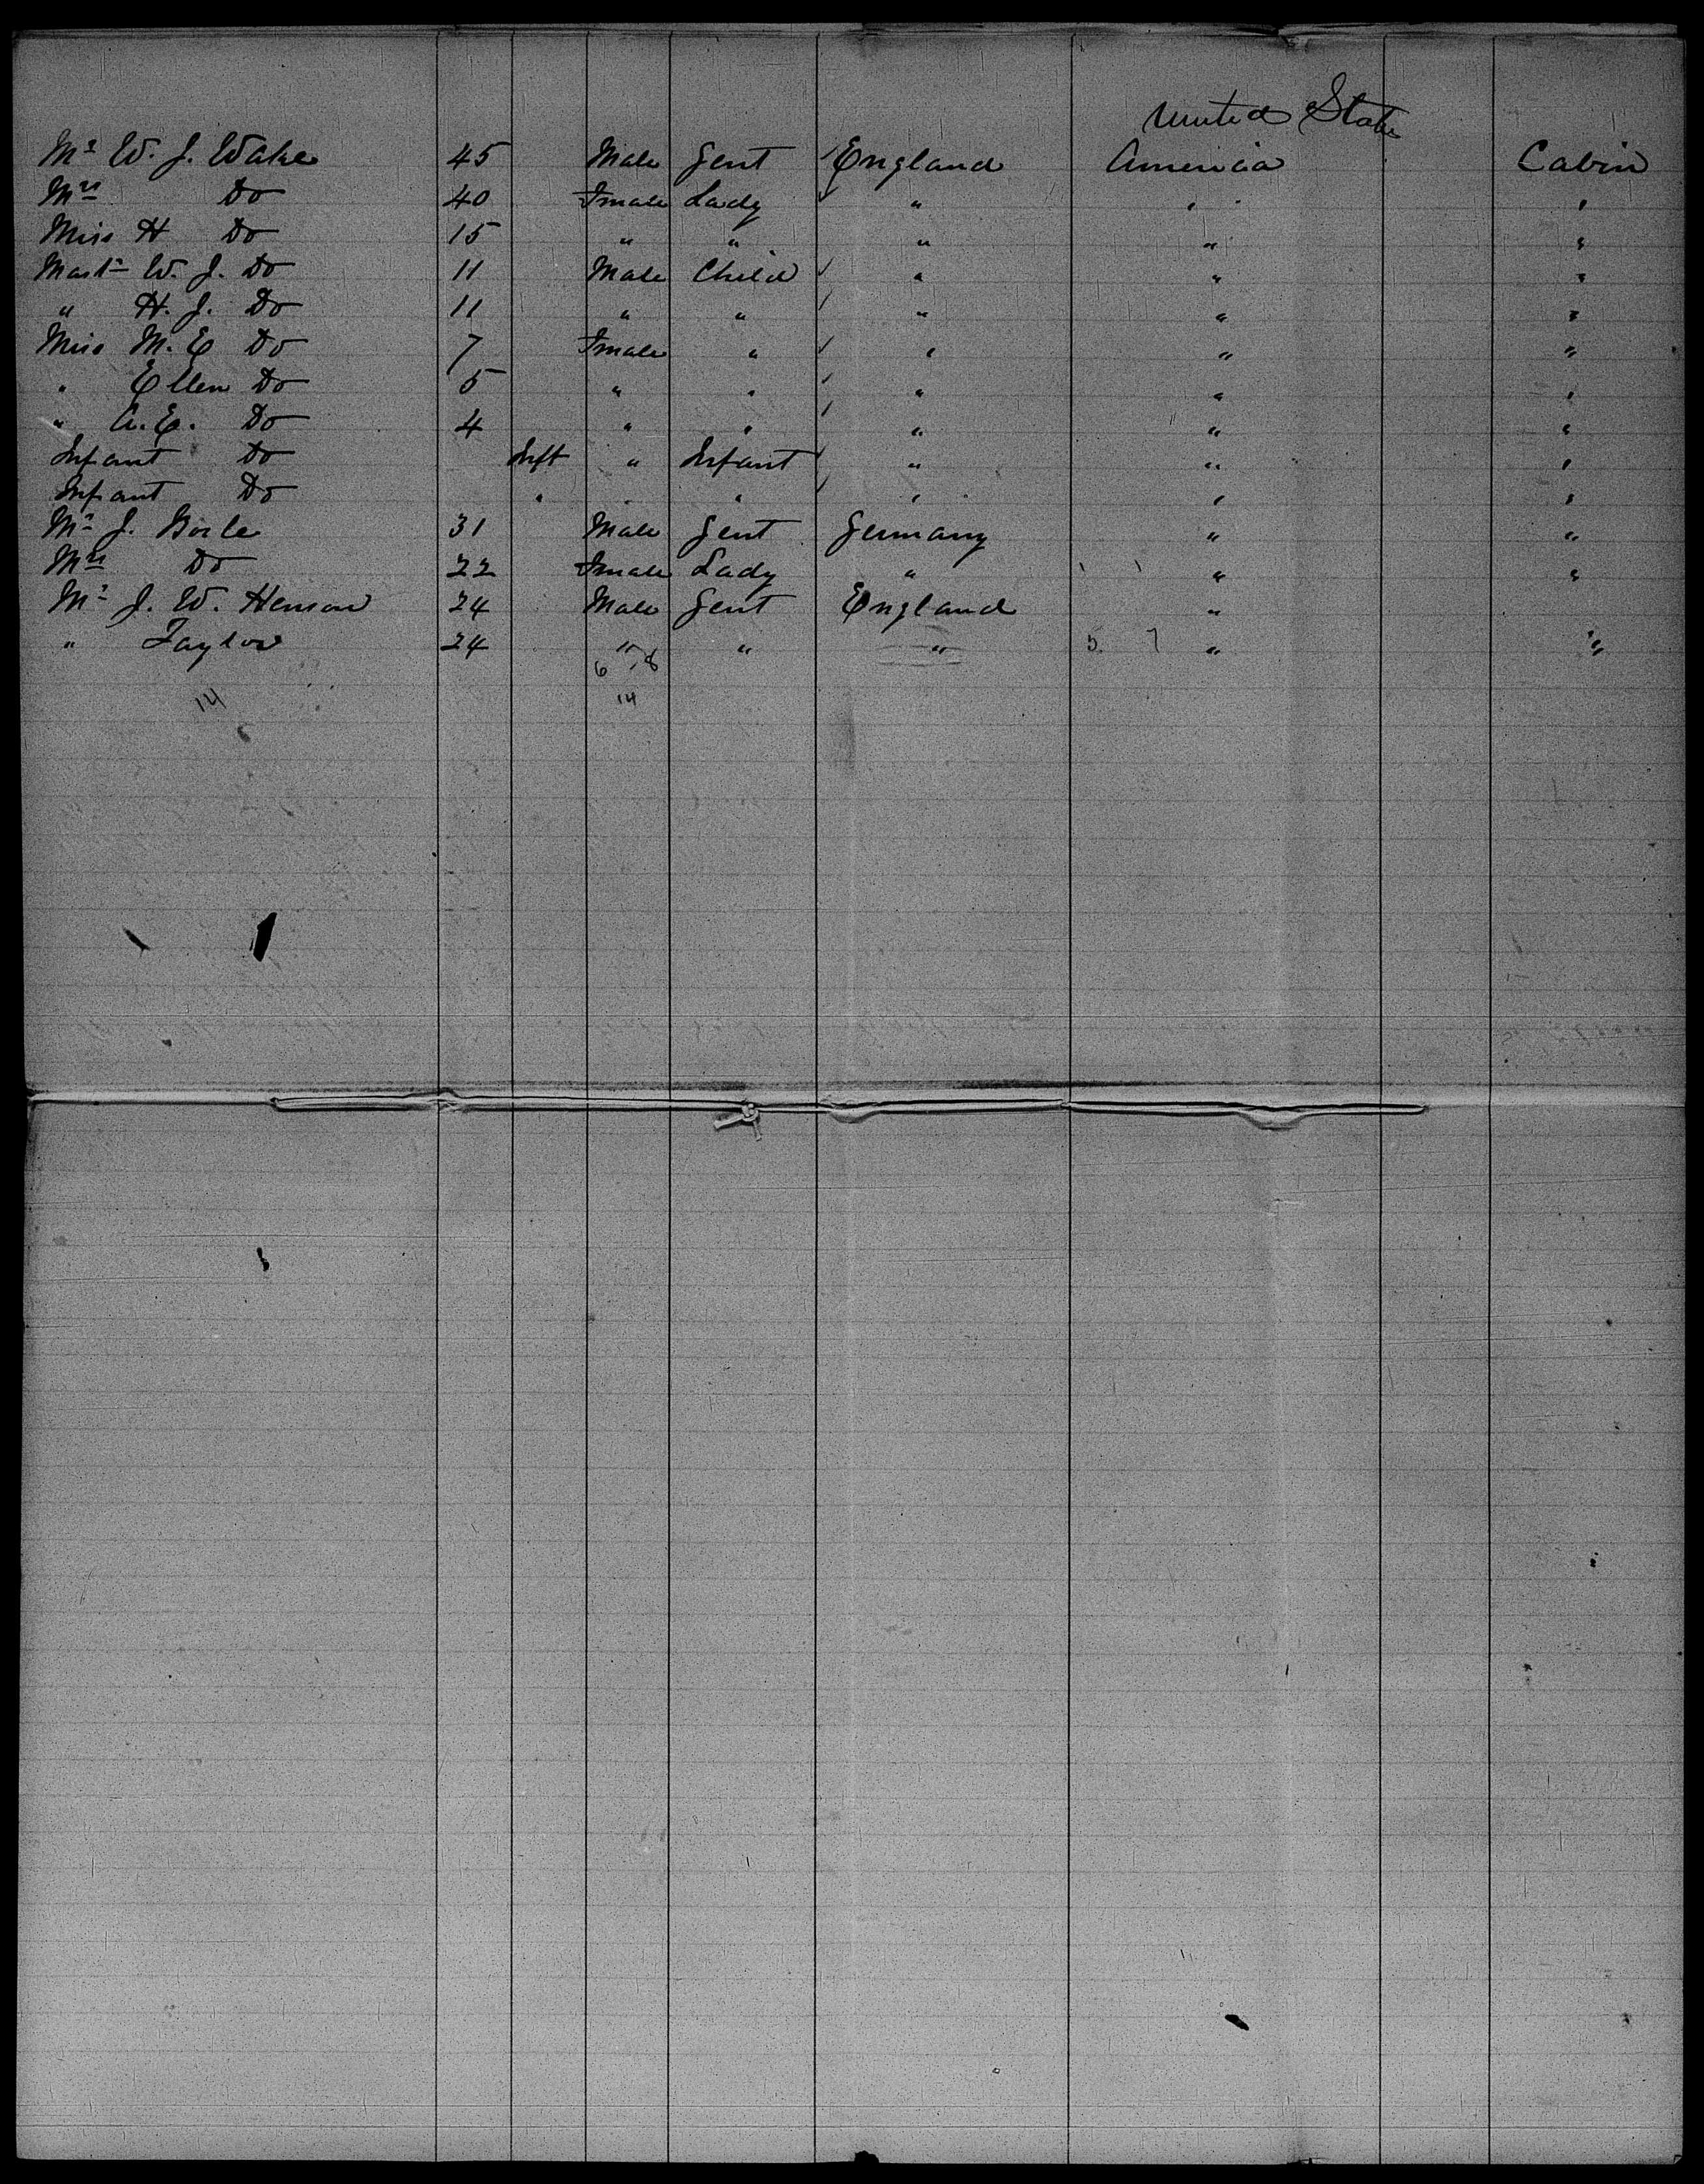 United State
Mr W. J. Wake 45 Male Gent ✓ England America Cabin
Mrs Do 40 Fmale Lady ✓ " " "
Miss H Do 15 " " " " "
Mastr W. J. Do 11 Male Child ✓ " " "
" H. J. Do 11 " " ✓ " " "
Miss M. E Do 7 Fmale " ✓ " " "
" Ellen Do 5 " " ✓ " " "
" A. E. Do 4 " " ✓ " " "
Infant Do Inft " Infant ✓ " " "
Infant Do " " " ✓ " " "
Mr J. 31 Male Gent Germany " "
Mrs Do 22 Fmale Lady " " "
Mr J. W. Henson 24 Male Gent England "
" Taylor 24 " " " 5 7 " "
6 8
14 14